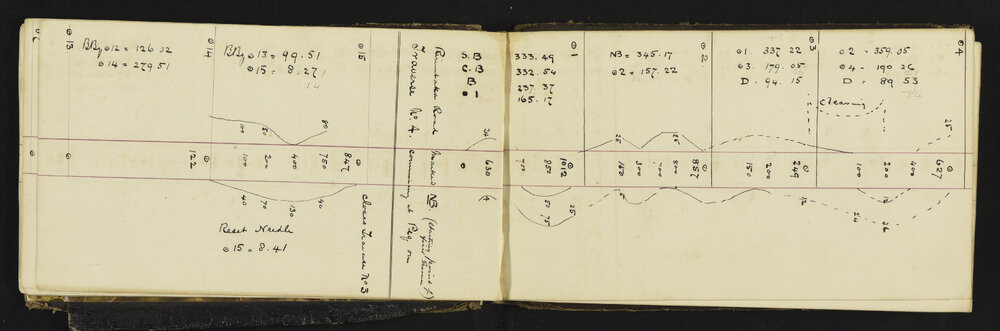 ⊙13
BBy ⊙12 = 126 02
⊙14 = 279 51
⊙14
BBy ⊙13 = 99.51
⊙15 = 8.27
14
⊙15
Road Marked NB
Traverse No. 4. commencing at Peg on
S. B
C. B
B 1
333.49
332.54
237.37
165.17
⊙1
NB = 345.17
⊙2 = 157.22
⊙2
⊙1. 337 22
⊙3. 179.05
D. 94.15
⊙3
⊙2 = 359.05
⊙4 = 190 26
D = 89 53
⊙4
clearing
100
80
80
34
25
25
25
122
⊙
100
200
400
750
847
⊙
⊙
630
700
850
1012
⊙
150
300
700
800
857
⊙
150
200
249
⊙
100
200
400
627
⊙
40
70
130
40
50
75
25
5
24
26
Reset Needle
⊙15 = 8.41
closes Traverse No 3